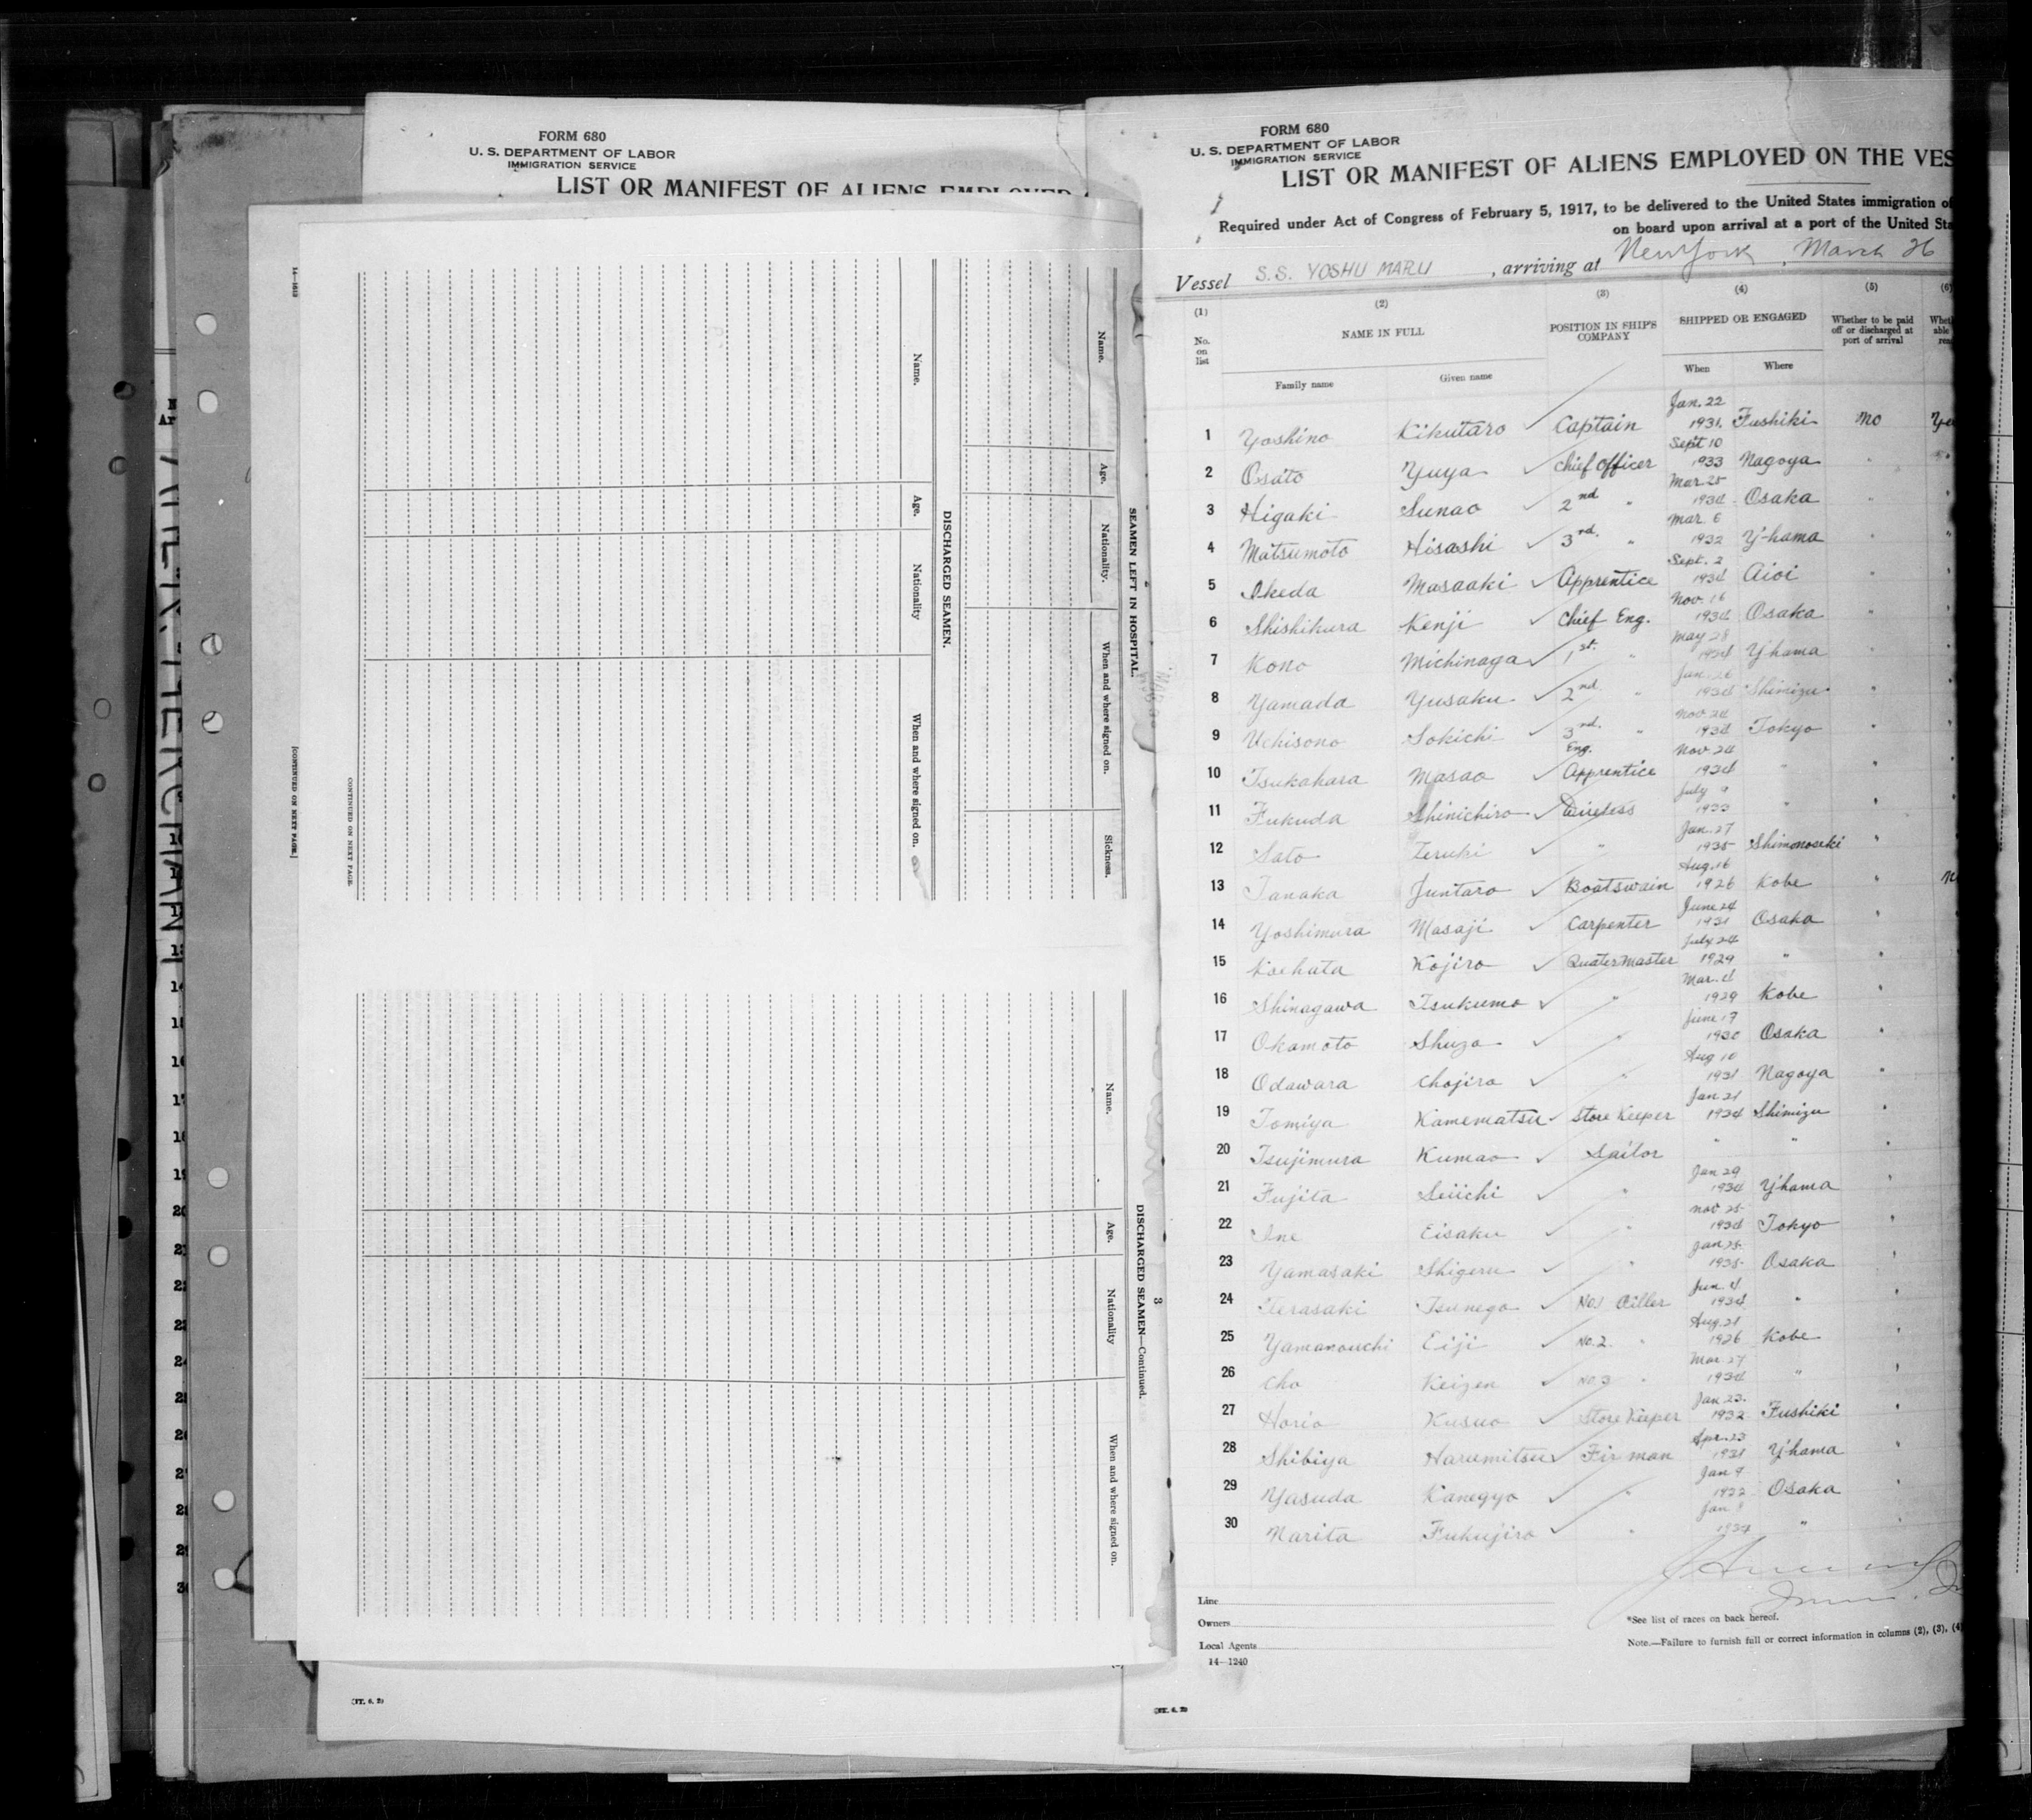 FORM 680
U. S. DEPARTMENT OF LABOR
IMMIGRATION SERVICE
LIST OR MANIFEST OF ALIENS EMPLOYED
SEAMEN LEFT IN HOSPITAL.
Name.
Age.
Nationality.
When and where signed on.
Sickness.
DISCHARGED SEAMEN.
Name.
Age.
Nationality
When and where signed on.
14—1613
[CONTINUED ON NEXT PAGE.]
CONTINUED ON NEXT PAGE.
3
DISCHARGED SEAMEN—Continued.
Name.
Age.
Nationality
When and where signed on.
FORM 680
U. S. DEPARTMENT OF LABOR
IMMIGRATION SERVICE
LIST OR MANIFEST OF ALIENS EMPLOYED ON THE VES
Required under Act of Congress of February 5, 1917, to be delivered to the United States immigration of
on board upon arrival at a port of the United Sta
Vessel S.S. YOSHU MARU, arriving at New York, March 26
(1) (2) (3) (4) (5) (6)
No. on list
NAME IN FULL
Family name Given name
POSITION IN SHIP'S COMPANY
SHIPPED OR ENGAGED
When Where
Whether to be paid off or discharged at port of arrival
1 Yoshino Kikutaro Captain Jan. 22 1931. Fushiki no Ye
2 Osato Yuya Chief Officer Sept 10 1933 Nagoya "
3 Higaki Sunao 2nd " Mar 25 1934 Osaka "
4 Matsumoto Hisashi 3rd. " Mar. 6 1932 Y'hama "
5 Ikeda Masaaki Apprentice Sept. 2 1934 Aioi "
6 Shishikura Kenji Chief Eng. Nov. 16 1934 Osaka "
7 Kono Michinaga 1st. " May 28 1934 Y'hama "
8 Yamada Yusaku 2nd " Jan. 26 1934 Shimizu "
9 Uchisono Sokichi 3rd. " Nov 24 1934 Tokyo "
10 Tsukahara Masao Eng. Apprentice Nov 24 1934 " "
11 Fukuda Shinichiro Wireless July 9 1933 " "
12 Sato Teruki " Jan. 27 1935 Shimonoseki "
13 Tanaka Juntaro Boatswain Aug. 16 1926 Kobe "
14 Yoshimura Masaji Carpenter June 24 1931 Osaka "
15 Kojiro Quatermaster July 24 1929 " "
16 Shinagawa Tsukumo " Mar. 4 1929 Kobe "
17 Okamoto Shuzo " June 17 1930 Osaka "
18 Odawara Chojiro " Aug 10 1931 Nagoya "
19 Tomiya Kamematsu Store Keeper Jan 21 1934 Shimizu "
20 Tsujimura Kumao Sailor " " "
21 Fujita Seiichi " Jan 29 1934 Y'hama "
22 Ine Eisaku " Nov 25 1934 Tokyo "
23 Yamasaki Shigeru " Jan 25 1935 Osaka "
24 Terasaki Tsunego No.1 Oiller Jun. 4 1934 " "
25 Yamanouchi Eiji No. 2 " Aug. 21 1926 Kobe "
26 Cho Keizen No 3 " Mar 27 1934 " "
27 Horio Kusuo Store Keeper Jan 23. 1932 Fushiki "
28 Shibiya Harumitsu Fir man Apr. 23 1931 Y'hama "
29 Yasuda Kanegyo " Jan 9 1932 Osaka "
30 Narita Fukujiro " Jan 1934 " "
Line
Owners
Local Agents
14—1240
*See list of races on back hereof.
Note.—Failure to furnish full or correct information in columns (2), (3), (4)